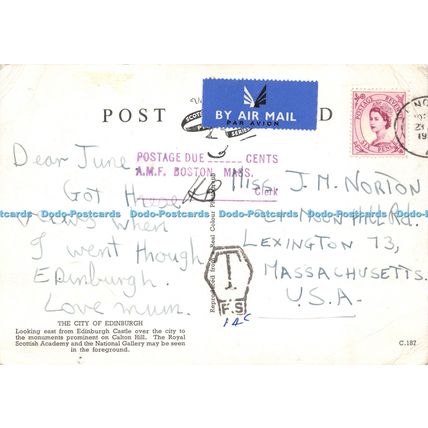 POST
BY AIR MAIL
PAR AVION
POSTAGE REVENUE
POSTAGE DUE CENTS
A.M.F. BOSTON, MASS.
Clerk
Dear June
Got
views when
I went though
Edinburgh.
Love mum.
Miss J. M. NORTON
Rd.
LEXINGTON 73,
MASSACHUSETTS.
U.S.A.
T
F.S
14c
THE CITY OF EDINBURGH
Looking east from Edinburgh Castle over the city to
the monuments prominent on Calton Hill. The Royal
Scottish Academy and the National Gallery may be seen
in the foreground.
C.187
Dodo-Postcards Dodo-Postcards Dodo-Postcards Dodo-Postcards